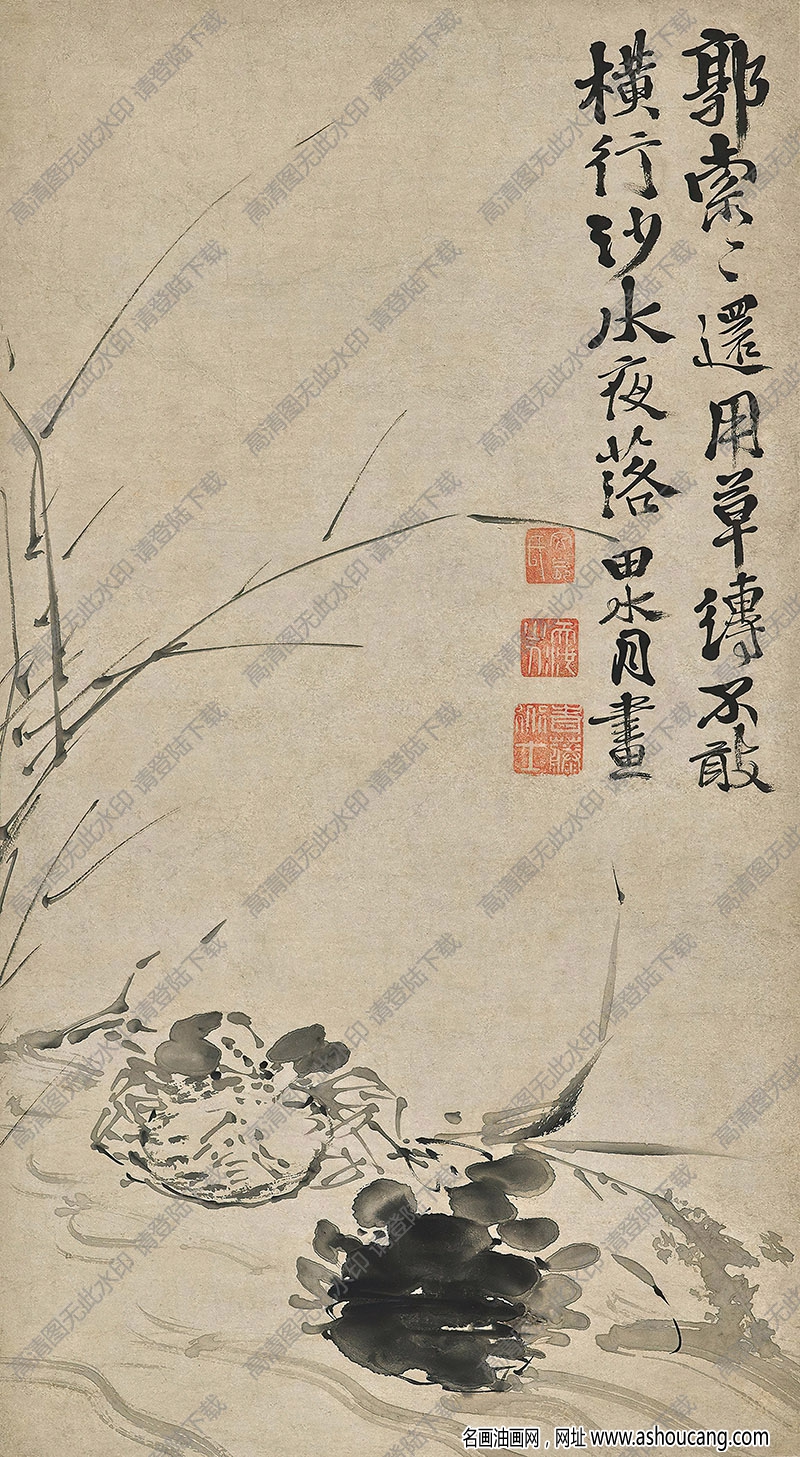 郭索々還用草縛不敢
橫行沙水夜落田水月畫
青藤
高清图无此水印 请登陆下载
名画油画网，网址 www.ashoucang.com